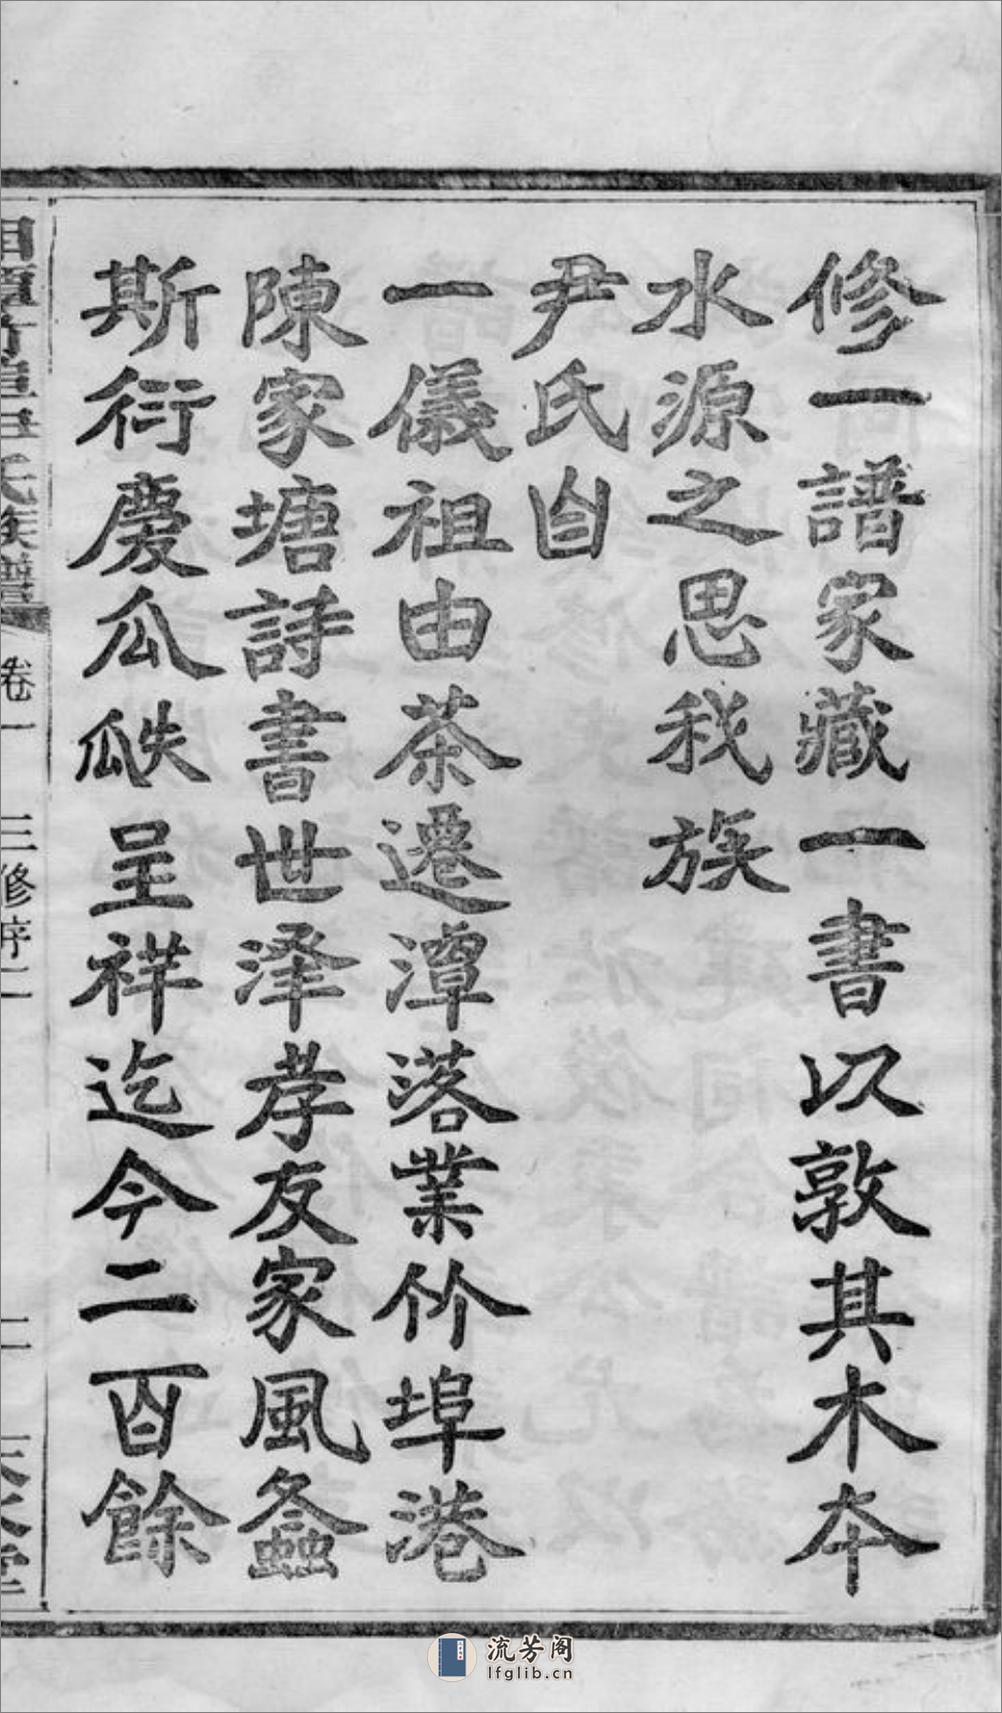 修一譜家藏一書以敦其木本
水源之思我族
尹氏自
一儀祖由茶遷潭落業竹埠港
陳家塘詩書世澤孝友家風螽
斯衍慶瓜瓞呈祥迄今二百餘
氏族譜
卷一
三修序二
二
流芳阁
lfglib.cn